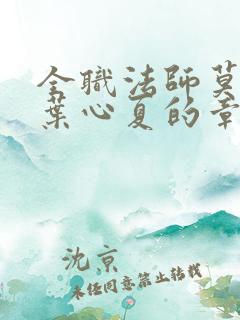 全职法师莫
葉心夏的章
沈京
未经同意禁止转载